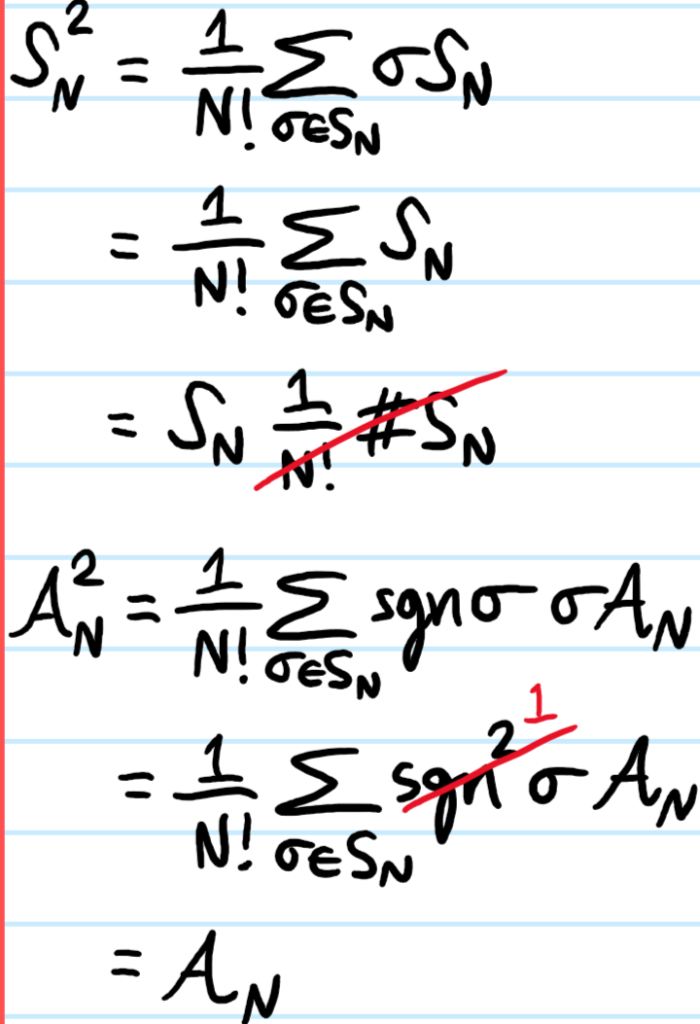 S_N^2 = \frac{1}{N!} \sum_{σ∈S_N} σS_N
= \frac{1}{N!} \sum_{σ∈S_N} S_N
= S_N \frac{1}{N!} #S_N
A_N^2 = \frac{1}{N!} \sum_{σ∈S_N} sgn σ σA_N
= \frac{1}{N!} \sum_{σ∈S_N} sgn^2 σ A_N 1
= A_N